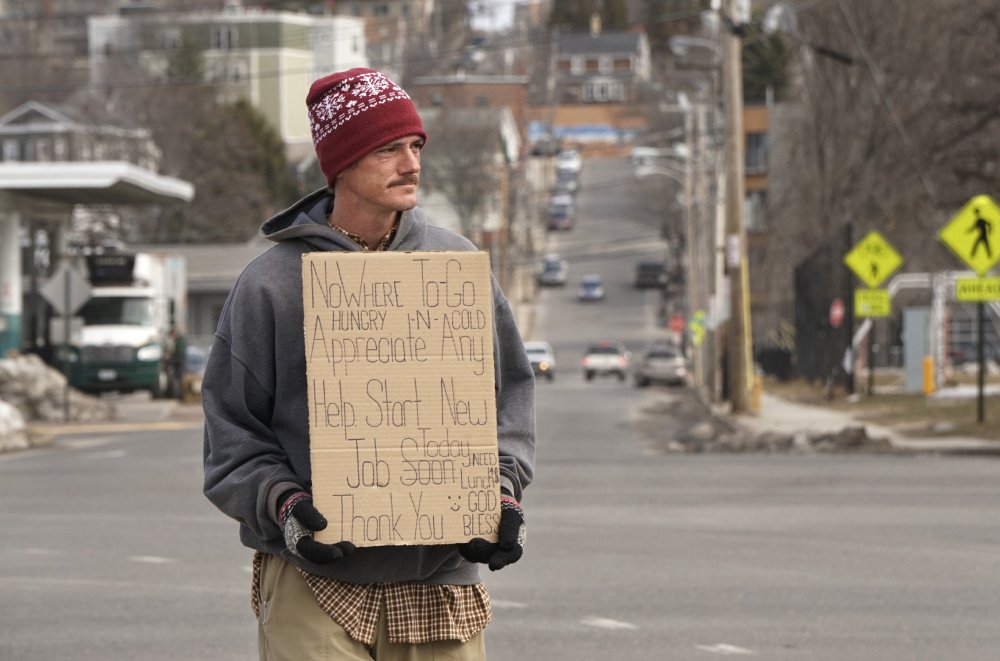 NoWHERE To-Go
A HUNGRY -N- COLD
Appreciate Any
Help Start New
Today
Job Soon
Thank You :)
NEED
Lunch
GOD
BLESS
AHEAD